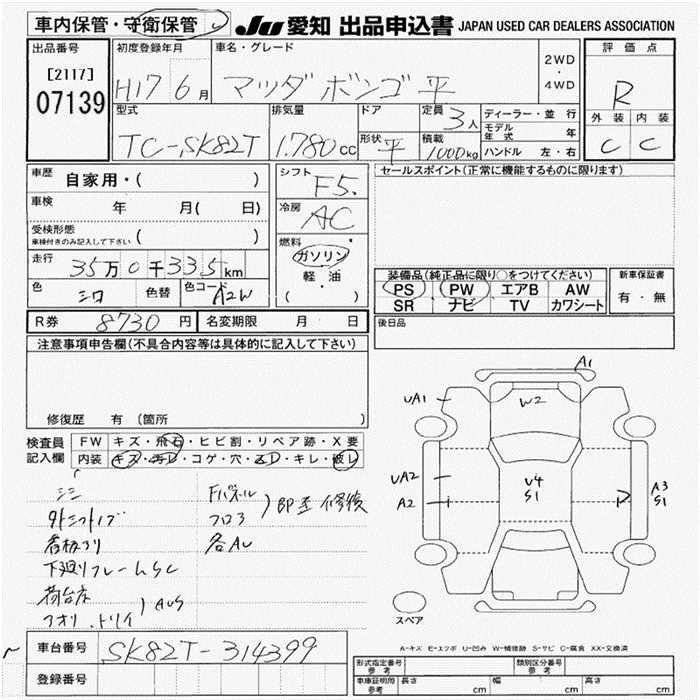 車内保管・守衛保管
JU 愛知 出品申込書 JAPAN USED CAR DEALERS ASSOCIATION
出品番号
[2117]
07139
初度登録年月
H17 6月
車名・グレード
マツダ ボンゴ 平
2WD
・
4WD
評価点
R
外装 内装
C C
型式
TC-SK82T
排気量
1.780cc
ドア
形状
平
定員
3人
積載
1000kg
ディーラー・並行
モデル年式 年
ハンドル 左・右
車歴
自家用・( )
車検
年 月( 日)
受検形態
車検付きのみ記入して下さい ( )
走行
35万0千335km
色
シロ
色替
色コード
A2W
シフト
F5.
冷房
AC
燃料
ガソリン
軽油
( )
セールスポイント(正常に機能するものに限ります)
装備品(純正品に限り○をつけてください)
PS PW エアB AW
SR ナビ TV カワシート
新車保証書
有・無
R券 8730円 名変期限 月 日
後日品
注意事項申告欄(不具合内容等は具体的に記入して下さい)
修復歴 有 (箇所 )
検査員
記入欄
FW キズ・飛石・ヒビ割・リペア跡・X要
内装 キズ・汚レ・コゲ・穴・スレ・キレ・破レ
Fパネル
フロア
修復
各AU
看板アリ
下廻りフレームSC
荷台床
アオリ
AUS
A1
UA1
W2
UA2
A2
U4
S1
P
A3
S1
スペア
A-キズ E-エクボ U-凹み W-補修跡 S-サビ C-腐食 XX-交換済
車台番号 SK82T-314399
登録番号
形式指定番号
参考
類別区分番号
参考
車庫証明用
参考
長さ cm 幅 cm 高さ cm